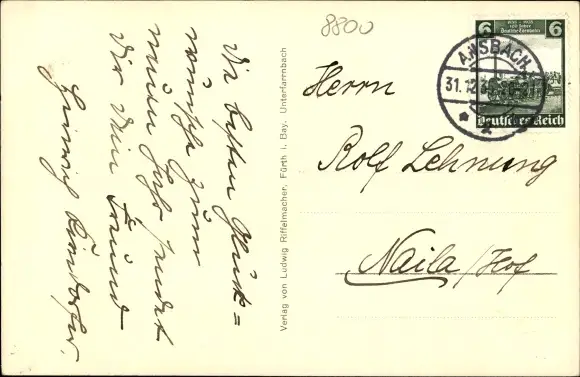 8800
Die besten Glück=
wünsche zum
neuen Jahr sendet
Dir Dein Freund
Heinrich
Verlag von Ludwig Riffelmacher, Fürth i. Bay. Unterfarrnbach
6 6
Deutsches Reich
ANSBACH
31.12.
2
Herrn
Rolf Lehnung
Naila/Hof